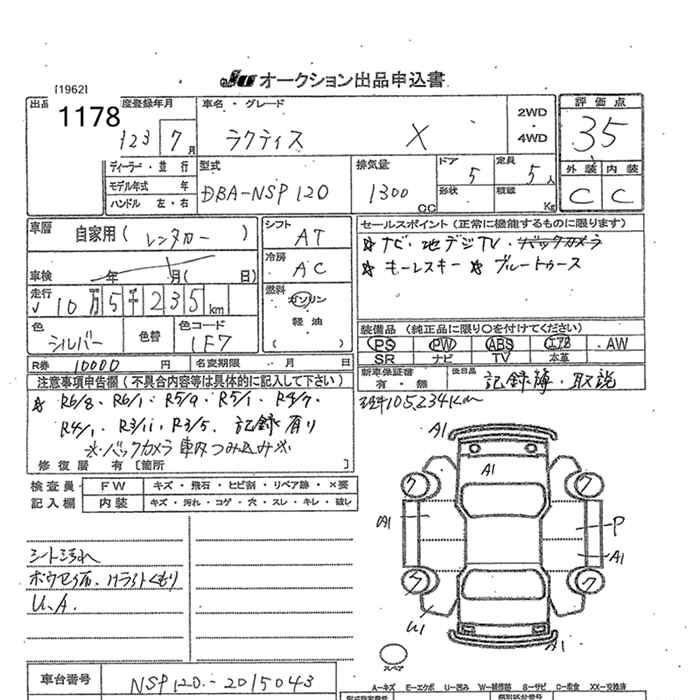 [1962]
JU オークション出品申込書
出品 1178 度登録年月 車名・グレード 2WD・4WD 評価点
H23 7月 ラクティス X 35
ディーラー・並行 型式 排気量 ドア 5 定員 5人 外装 内装
モデル年式 年 DBA-NSP120 1300cc 形状 積載 Kg C C
ハンドル 左・右
車歴 自家用(レンタカー) シフト AT セールスポイント(正常に機能するものに限ります)
冷房 AC ☆ナビ・地デジTV・バックカメラ
車検 年 月(日) ☆キーレスキー ☆ブルートゥース
走行 10万5千235km 燃料 ガソリン 軽油 ( )
色 シルバー 色替 色コード 1F7 装備品(純正品に限り○を付けてください)
PS PW ABS エアB AW
SR ナビ TV 本革
R券 10000円 名変期限 月 日 新車保証書 有・無 後日品 記録簿・取説
注意事項申告欄(不具合内容等は具体的に記入して下さい)
☆R6/8. R6/1. R5/9. R5/1. R4/7.
R4/1. R3/11. R3/5. 記録有り
※バックカメラ車内つみ込み※
修復歴 有[箇所 ]
105,234Km
検査員記入欄 FW キズ・飛石・ヒビ割・リペア跡・×要
内装 キズ・汚れ・コゲ・穴・スレ・キレ・破レ
シート汚れ
ボウセイ剤、Hライトくもり
U.A.
A1
A1
7 7
A1 P
A1
7 7
U1 A1
スペア
車台番号 NSP120-2015043
A-キズ E-エクボ U-凹み W-補修跡 S-サビ C-腐食 XX-交換済